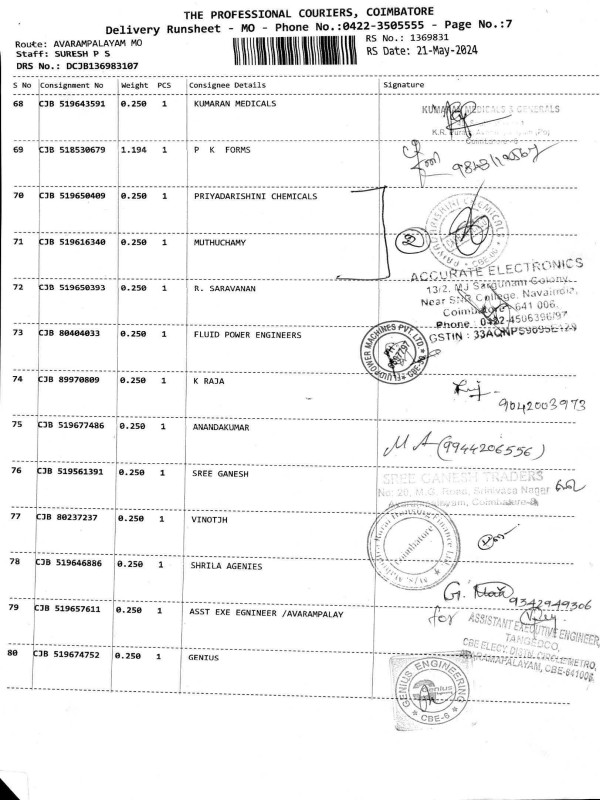 THE PROFESSIONAL COURIERS, COIMBATORE
Delivery Runsheet - MO - Phone No.:0422-3505555 - Page No.:7
Route: AVARAMPALAYAM MO
RS No.: 1369831
Staff: SURESH P S
RS Date: 21-May-2024
DRS No.: DCJB136983107
S No Consignment No Weight PCS Consignee Details Signature
68 CJB 519643591 0.250 1 KUMARAN MEDICALS
KUMARAN MEDICALS & GENERALS
69 CJB 518530679 1.194 1 P K FORMS
70 CJB 519650409 0.250 1 PRIYADARISHINI CHEMICALS
PRIYADARISHINI CHEMICALS
CBE-06
71 CJB 519616340 0.250 1 MUTHUCHAMY
2
ACCURATE ELECTRONICS
72 CJB 519650393 0.250 1 R. SARAVANAN
13/2, MJ Sargunam Colony,
Near SNR College, Navaindia,
Coimbatore - 641 006.
Phone : 0422-4506396/97
73 CJB 80404033 0.250 1 FLUID POWER ENGINEERS
GSTIN :
FLUIDPOWER MACHINES PVT LTD
CBE-30
74 CJB 89970809 0.250 1 K RAJA
9042003973
75 CJB 519677486 0.250 1 ANANDAKUMAR
M A (9944206556)
76 CJB 519561391 0.250 1 SREE GANESH
SREE GANESH TRADERS
No: 20, M.G. Road, Srinivasa Nagar
77 CJB 80237237 0.250 1 VINOTJH
Coimbatore
78 CJB 519646886 0.250 1 SHRILA AGENIES
9342949306
79 CJB 519657611 0.250 1 ASST EXE EGNINEER /AVARAMPALAY
for
ASSISTANT EXECUTIVE ENGINEER,
TANGEDCO,
CBE ELECY. DISTN. CIRCLE/METRO,
AVARAMAPALAYAM, CBE-641006.
80 CJB 519674752 0.250 1 GENIUS
GENIUS ENGINEERING
Genius
CBE-6